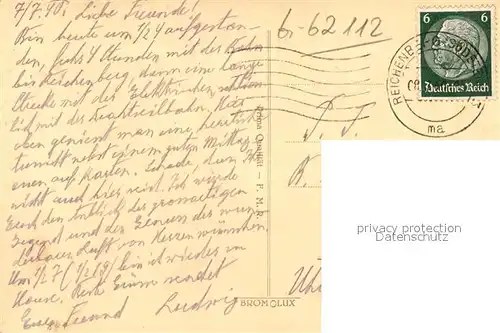 7/7.40. Liebe Freunde!
Bin heute um 1/2 4 aufgestan-
den, fuhr 4 Stunden mit der Bahn
bis Reichenberg, dann eine lange
Strecke mit der Elektrischen
mit der Drahtseilbahn. Hier
oben genießt man eine herrliche
Fernsicht nebst einem guten Mittag-
essen auf Karten. Schade, daß Ihr
nicht auch hier seid. Ich würde
Euch den Anblick der großartigen
Gegend und den Genuß der wun-
derbaren Luft von Herzen wünschen.
Um 1/2 7 bin ich wieder zu
Hause. Herzl. Grüße sendet
Euer Freund Ludwig
6-62112
REICHENBERG
6 6
Deutsches Reich
ma
P. T.
Prima Qualität - P. M. R.
BROMOLUX
privacy protection
Datenschutz